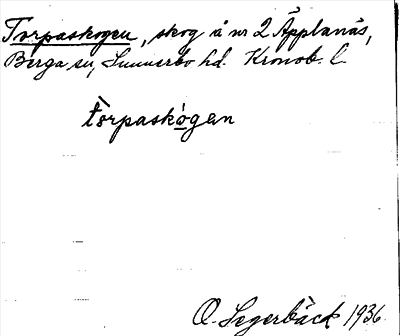 Torpaskogen, skog å nr 2 Äpplanäs,
Berga sn, Sunnerbo hd. Kronob. l.
tòrpaskọ́gen
O. Segerbäck 1936.